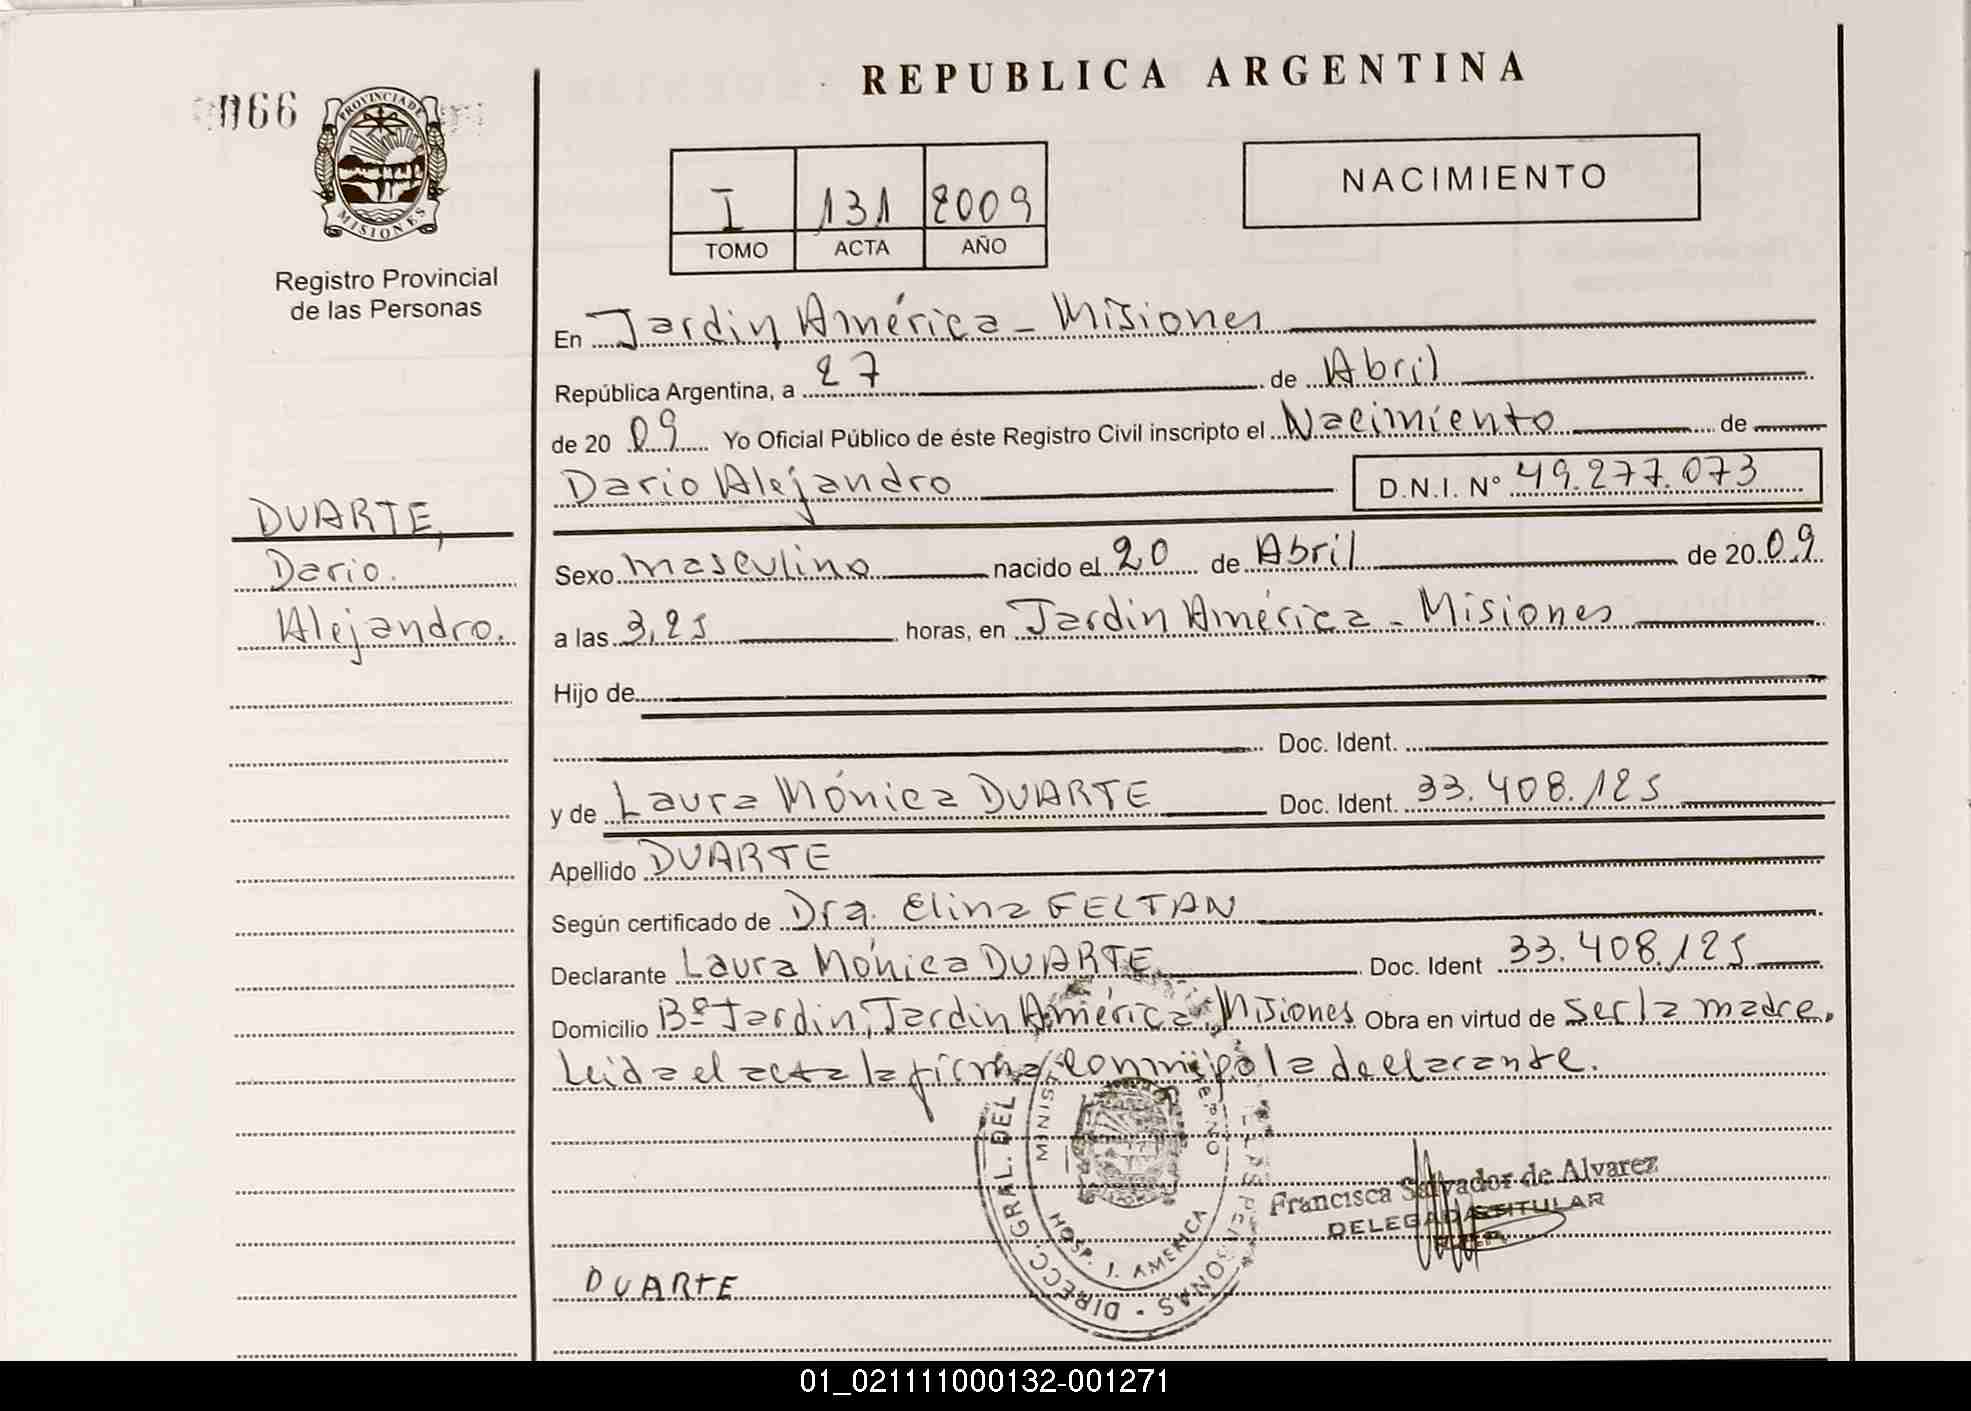 REPUBLICA ARGENTINA
066
PROVINCIA DE
MISIONES
Registro Provincial
de las Personas
NACIMIENTO
I 131 2009
TOMO ACTA AÑO
En Jardin América - Misiones
República Argentina, a 27 de Abril
de 20 09 Yo Oficial Público de éste Registro Civil inscripto el Nacimiento de
Dario Alejandro D.N.I. Nº 49.277.073
DUARTE,
Dario.
Alejandro.
Sexo masculino nacido el 20 de Abril de 20 09
a las 3,25 horas, en Jardin América - Misiones
Hijo de
Doc. Ident.
y de Laura Mónica DUARTE Doc. Ident. 33.408.125
Apellido DUARTE
Según certificado de Dra. Elina FELTAN
Declarante Laura Mónica DUARTE Doc. Ident 33.408.125
Domicilio Bº Jardin, Jardin América, Misiones Obra en virtud de ser la madre.
Leida el acta la firma conmigo la declarante.
DIRECC. GRAL. DEL
HOSP. J. AMERICA
Francisca Salvador de Alvarez
DELEGADA TITULAR
DUARTE
01_021111000132-001271